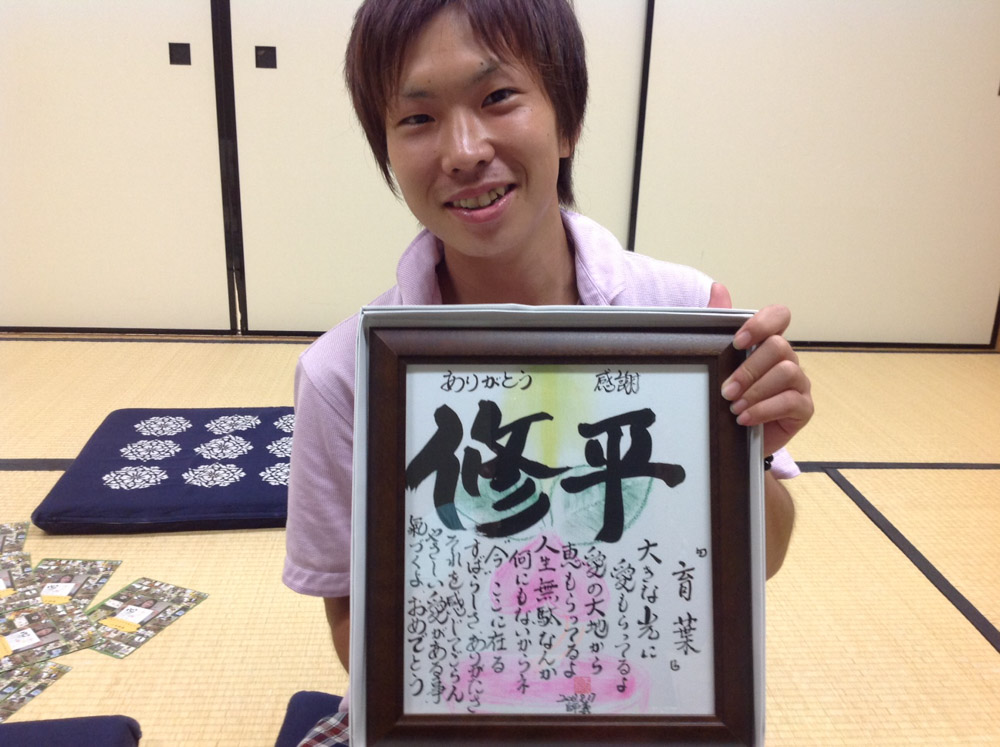 ありがとう 感謝
修平
『育葉』
大きな光に
愛もらってるよ
愛の大地から
恵もらってるよ
人生無駄なんか
何にもないからネ
“今”ここに在る
すばらしさありがたさ
それを感じてごらん
やさしい愛がある事
氣づくよおめでとう